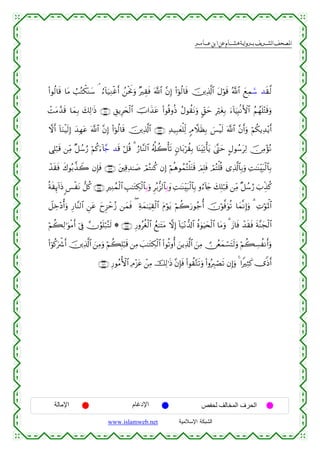 المصحف الشريف برواية هشام عن ابن عامر
لَّقَد سَّمِعَ ٱللَّهُ قَوۡلَ ٱلَّذِينَ قَالُوٓاْ إِنَّ ٱللَّهَ فَقِيرٞ وَنَحۡنُ أَغۡنِيَآءُۘ سَنَكۡتُبُ مَا قَالُواْ
وَقَتۡلَهُمُ ٱلۡأَنۢبِيَآءَ بِغَيۡرِ حَقّٖ وَنَقُولُ ذُوقُواْ عَذَابَ ٱلۡحَرِيقِ ١٨١ ذَٰلِكَ بِمَا قَدَّمَتۡ
أَيۡدِيكُمۡ وَأَنَّ ٱللَّهَ لَيۡسَ بِظَلَّامٖ لِّلۡعَبِيدِ ١٨٢ ٱلَّذِينَ قَالُوٓاْ إِنَّ ٱللَّهَ عَهِدَ إِلَيۡنَآ أَلَّا
نُؤۡمِنَ لِرَسُولٍ حَتَّىٰ يَأۡتِيَنَا بِقُرۡبَانٖ تَأۡكُلُهُ ٱلنَّارُۗ قُلۡ قَد جَّآءَكُمۡ رُسُلٞ مِّن قَبۡلِي
بِٱلۡبَيِّنَٰتِ وَبِٱلَّذِي قُلۡتُمۡ فَلِمَ قَتَلۡتُمُوهُمۡ إِن كُنتُمۡ صَٰدِقِينَ ١٨٣ فَإِن كَذَّبُوكَ فَقَدۡ
كُذِّبَ رُسُلٞ مِّن قَبۡلِكَ جَآءُو بِٱلۡبَيِّنَٰتِ وَبِٱلزُّبُرِ وَبِٱلۡكِتَٰبِ ٱلۡمُنِيرِ ١٨٤ كُلُّ نَفۡسٖ ذَآئِقَةُ
ٱلۡمَوۡتِۗ وَإِنَّمَا تُوَفَّوۡنَ أُجُورَكُمۡ يَوۡمَ ٱلۡقِيَٰمَةِۖ فَمَن زُحۡزِحَ عَنِ ٱلنَّارِ وَأُدۡخِلَ
ٱلۡجَنَّةَ فَقَدۡ فَازَۗ وَمَا ٱلۡحَيَوٰةُ ٱلدُّنۡيَآ إِلَّا مَتَٰعُ ٱلۡغُرُورِ ١٨٥ ۞ لَتُبۡلَوُنَّ فِيٓ أَمۡوَٰلِكُمۡ
وَأَنفُسِكُمۡ وَلَتَسۡمَعُنَّ مِنَ ٱلَّذِينَ أُوتُواْ ٱلۡكِتَٰبَ مِن قَبۡلِكُمۡ وَمِنَ ٱلَّذِينَ أَشۡرَكُوٓاْ
أَذٗى كَثِيرٗاۚ وَإِن تَصۡبِرُواْ وَتَتَّقُواْ فَإِنَّ ذَٰلِكَ مِنۡ عَزۡمِ ٱلۡأُمُورِ ١٨٦
الحرف المخالف لحفص الإدغام الإمالة
الشبكة الإسلامية www.islamweb.net